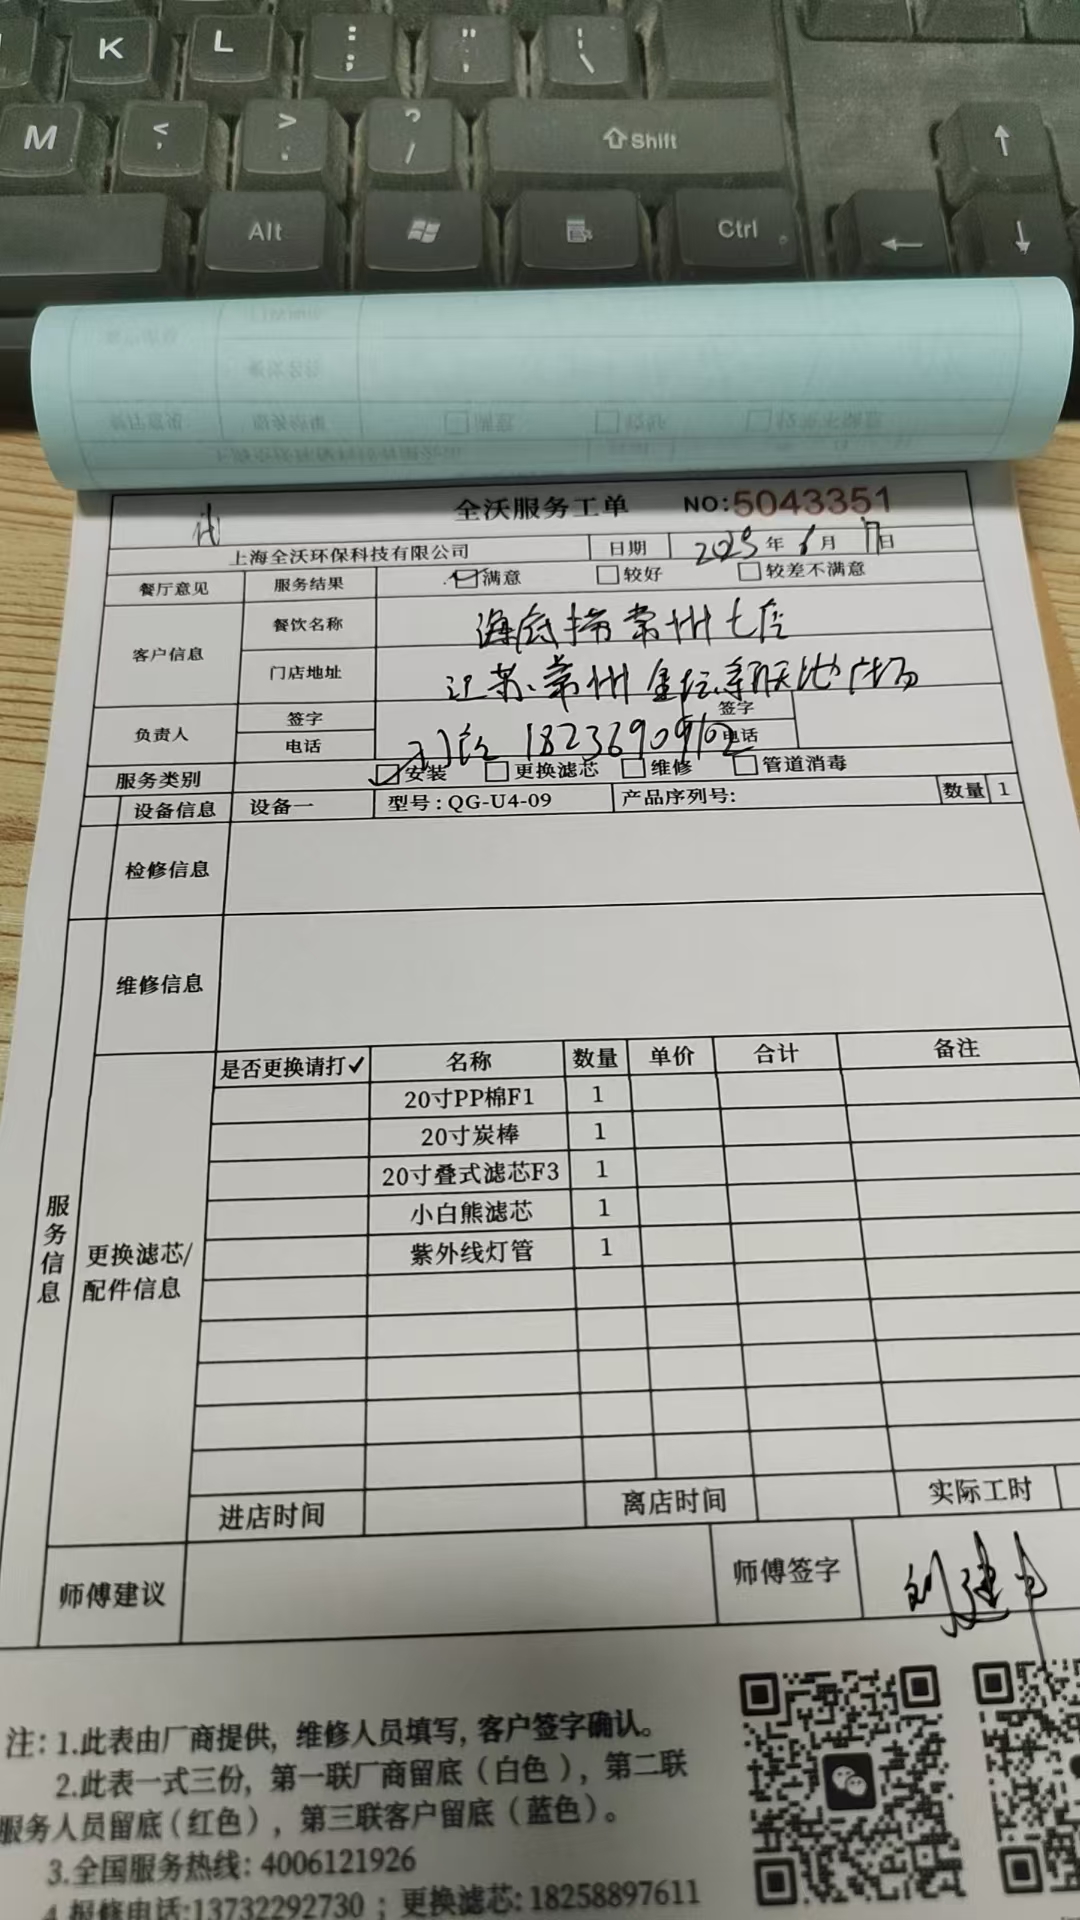 K L : ; " ' | \
M < , > . ? / Shift ↑
Alt Ctrl ← ↓
全沃服务工单 NO:5043351
上海全沃环保科技有限公司 日期 2025年6月17日
餐厅意见 服务结果 满意 较好 较差不满意
客户信息 餐饮名称 海底捞常州七店
门店地址 江苏常州金坛新天地广场
负责人 签字 签字
电话 18236909102 电话
服务类别 安装 更换滤芯 维修 管道消毒
设备信息 设备一 型号:QG-U4-09 产品序列号: 数量 1
检修信息
维修信息
是否更换请打✓ 名称 数量 单价 合计 备注
20寸PP棉F1 1
20寸炭棒 1
20寸叠式滤芯F3 1
小白熊滤芯 1
紫外线灯管 1
服务信息
更换滤芯/
配件信息
进店时间 离店时间 实际工时
师傅建议 师傅签字 刘建
注: 1.此表由厂商提供, 维修人员填写, 客户签字确认。
2.此表一式三份, 第一联厂商留底(白色), 第二联
服务人员留底(红色), 第三联客户留底(蓝色)。
3.全国服务热线: 4006121926
4.报修电话:13732292730 ; 更换滤芯: 18258897611